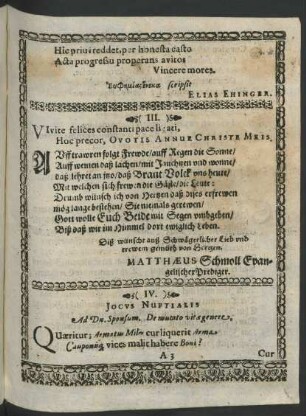 Hic prius reddet, per honesta casto
Acta progressu properans avitos
Vincere mores.
scripsit
ELIAS EHINGER.
III.
VIvite felices constanti pace
Hoc precor,
Auff trawren folgt Frewde/ auff Regen die Sonne/
Auff weinen daß lachen/ mit Juchtzen und wonne/
daß lehret an jtzo/ daß Braut Volck uns heute/
Mit welchen sich frewen die Gäste/ die Leute:
Drumb wünsch ich von Hertzen daß dises erfrewen
mög lange bestehen/ Sie niemals gerewen/
Gott wolle Euch Beide mit Segen umbgeben/
Biß daß wir im Himmel dort ewiglich leben.
Diß wünscht auß Schwägerlicher Lieb und
trewem gemüth von Hertzen
MATTHÆUS Schmoll Evan-
gelischer Prediger.
IV.
JOCUS NUPTIALIS
Ad Dn. Sponsum. De mutato vitæ genere,
QUæritur; Armatus Miles cur liquerit Arma,
Cauponis vices malit habere Boni?
A 3 Cur